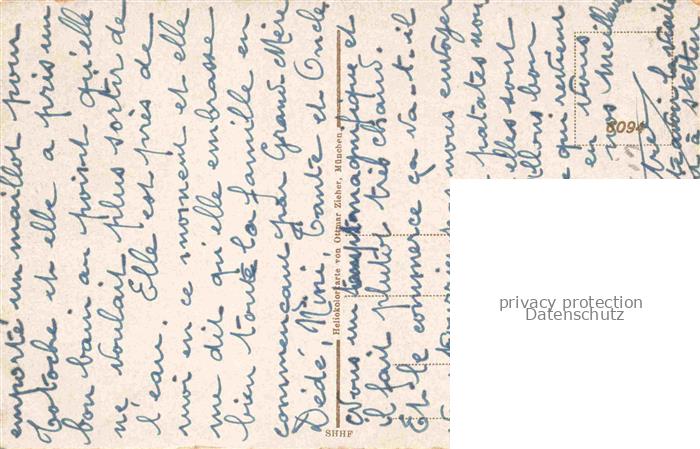 emporté un maillot pour
Totoche et elle a pris un
bon bain au point qu'elle
ne voulait plus sortir de
l'eau. Elle est près de
moi en ce moment et elle
me dit qu'elle embrasse
bien toute la famille en
commençant par Grand Mère
Dédé, Nini, Tante et Oncle.
Heliokolorkarte von Ottmar Zieher, München.
SHHF
Nous un temps magnifique et
il fait plutôt très chaud.
Et le commerce ça va-t-il
nous envoyer
patates nou
elles sont
bon
que
en
nos meilleu
6094
privacy protection
Datenschutz